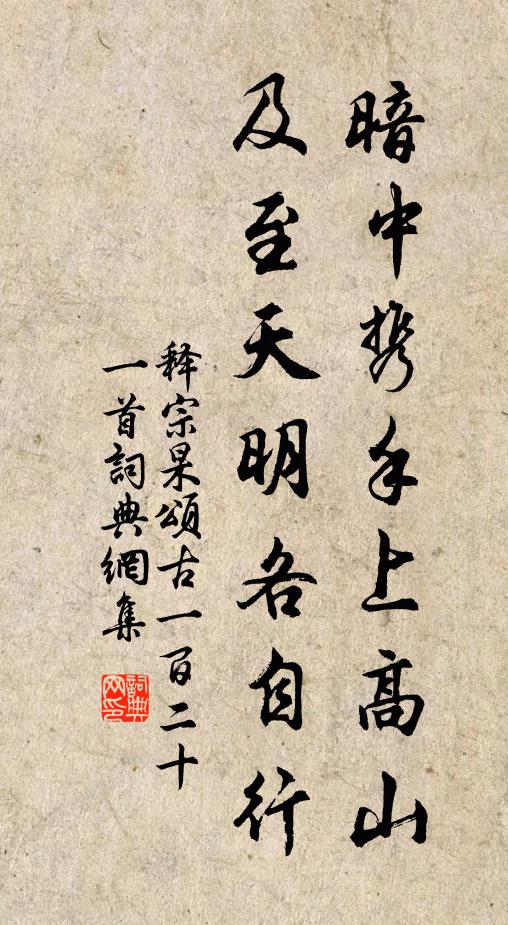 暗中携手上高山
及至天明各自行
释宗杲頌古一百二十
一首詞典網集
詞典
网印